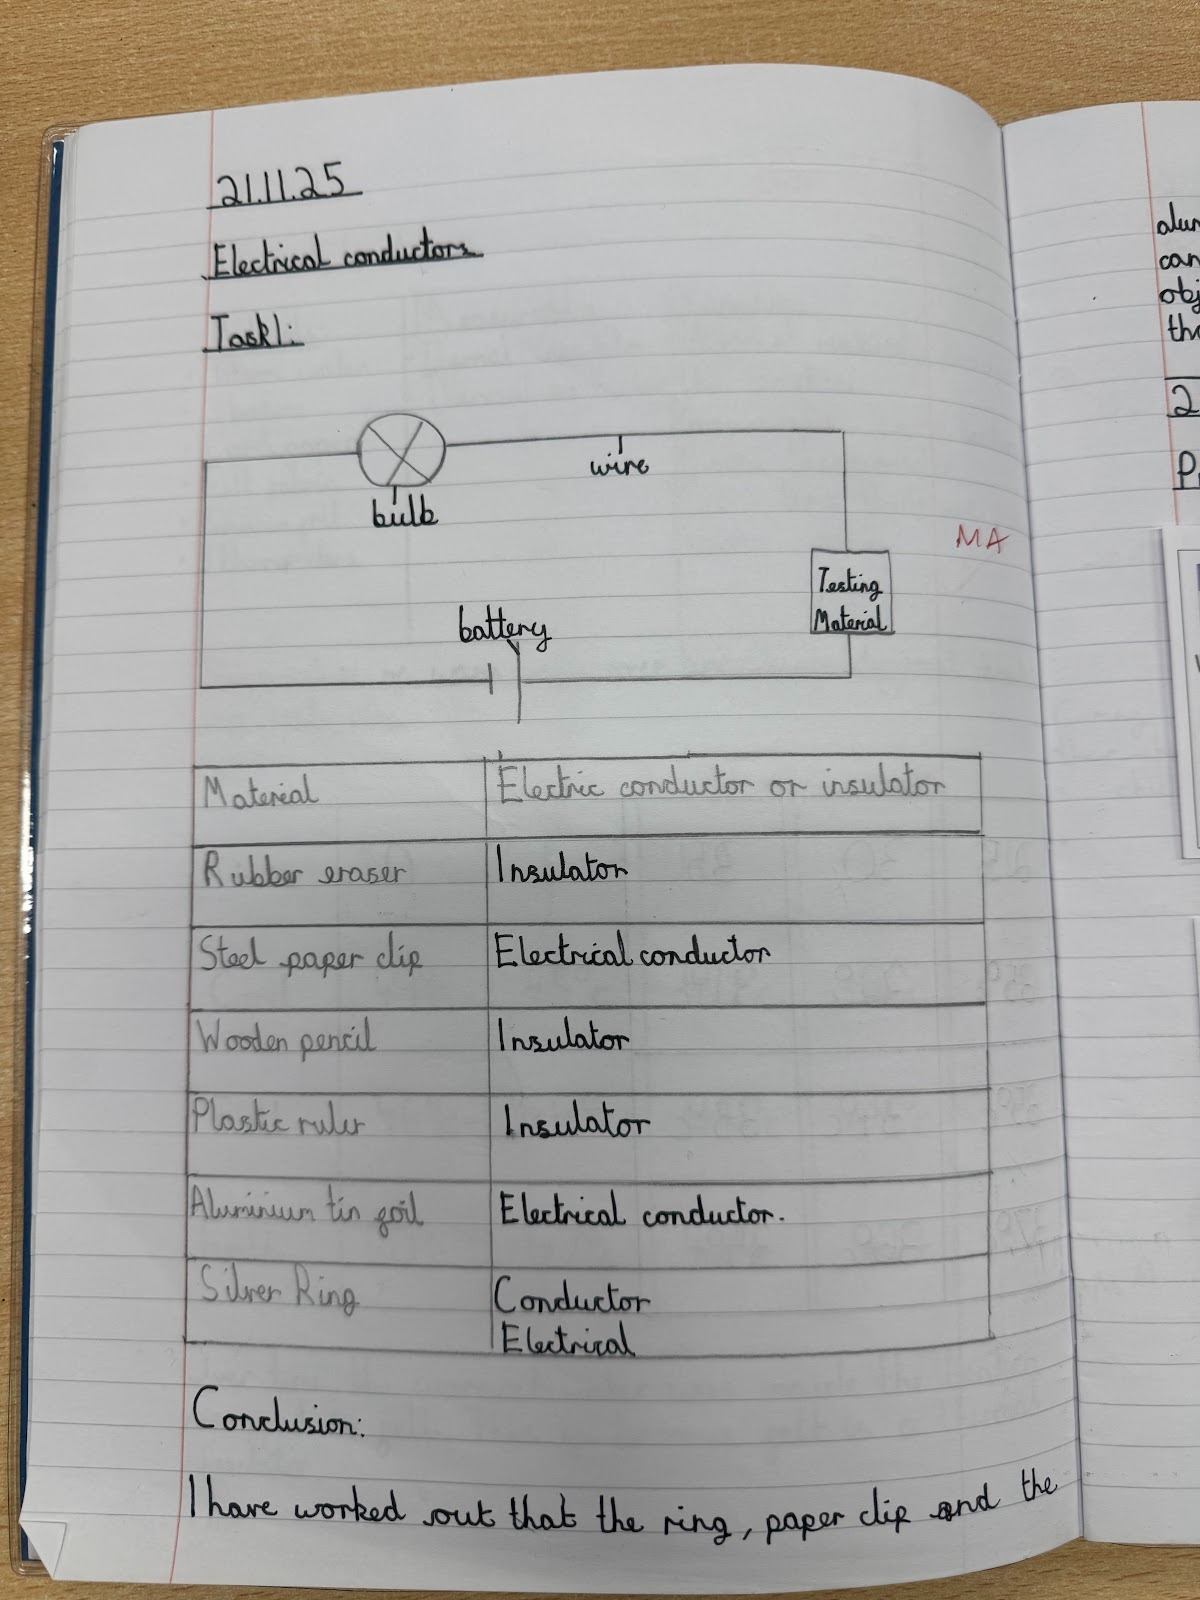 21.11.25
Electrical conductors
Task1:
bulb
wire
MA
Testing
Material
battery
Material Electric conductor or insulator
Rubber eraser Insulator
Steel paper clip Electrical conductor
Wooden pencil Insulator
Plastic ruler Insulator
Aluminium tin foil Electrical conductor.
Silver Ring Conductor
Electrical
Conclusion:
I have worked out that the ring, paper clip and the
2